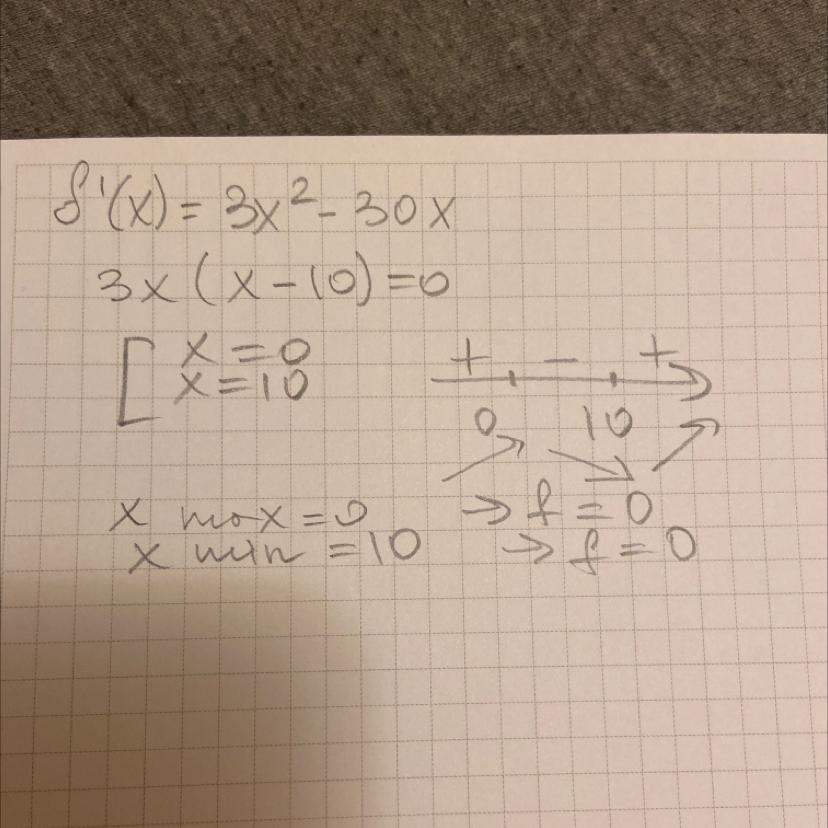 f'(x) = 3x² - 30x
3x(x-10)=0
[ x = 0
x = 10
+ - +
0 10
x max = 0 → f = 0
x min = 10 → f = 0